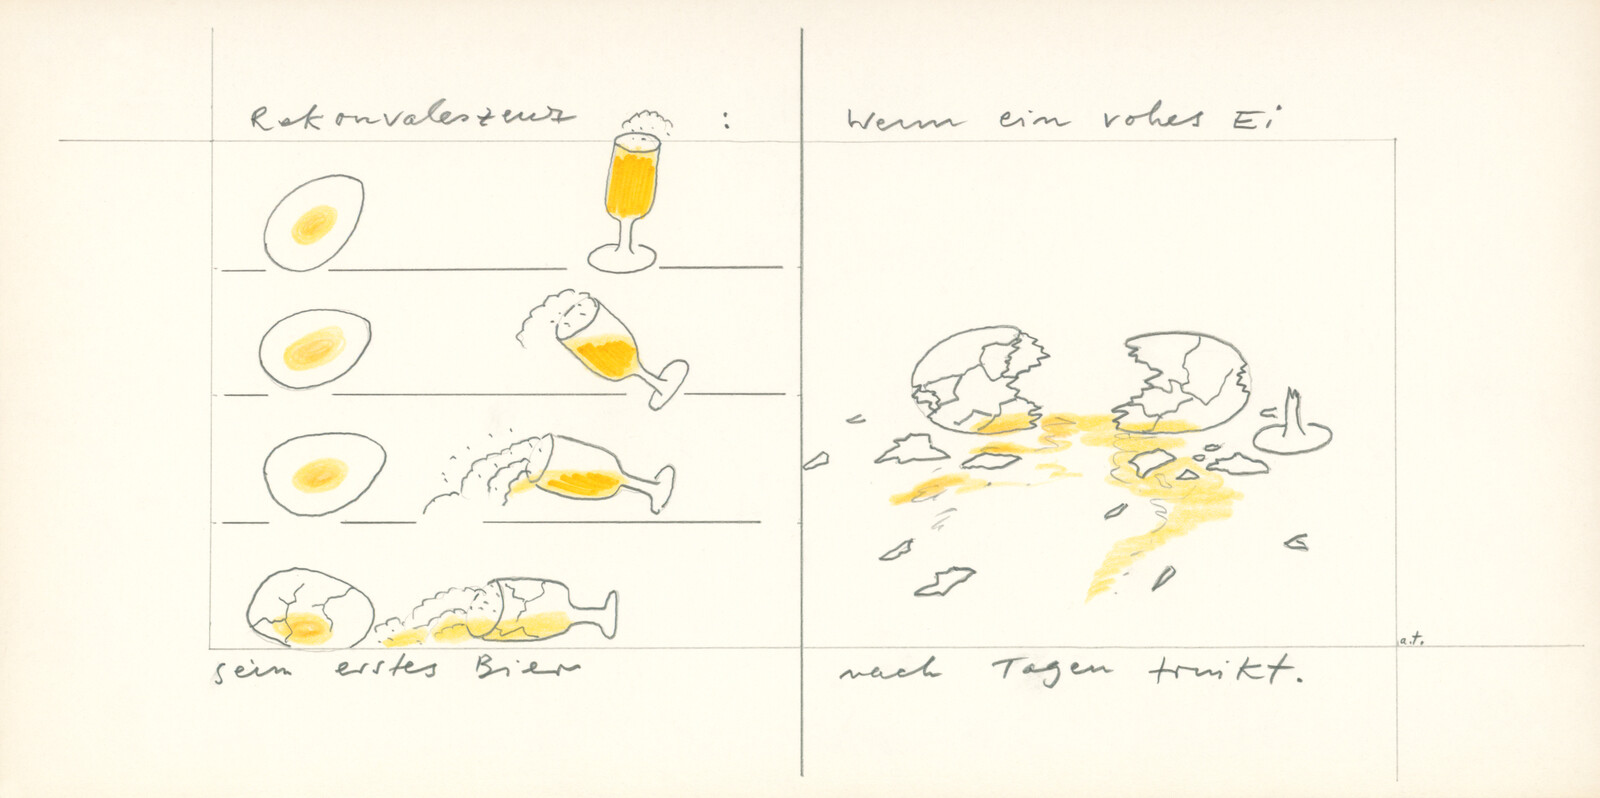 Rekonvaleszenz :
Wenn ein rohes Ei
sein erstes Bier
nach Tagen trinkt.
a.t.